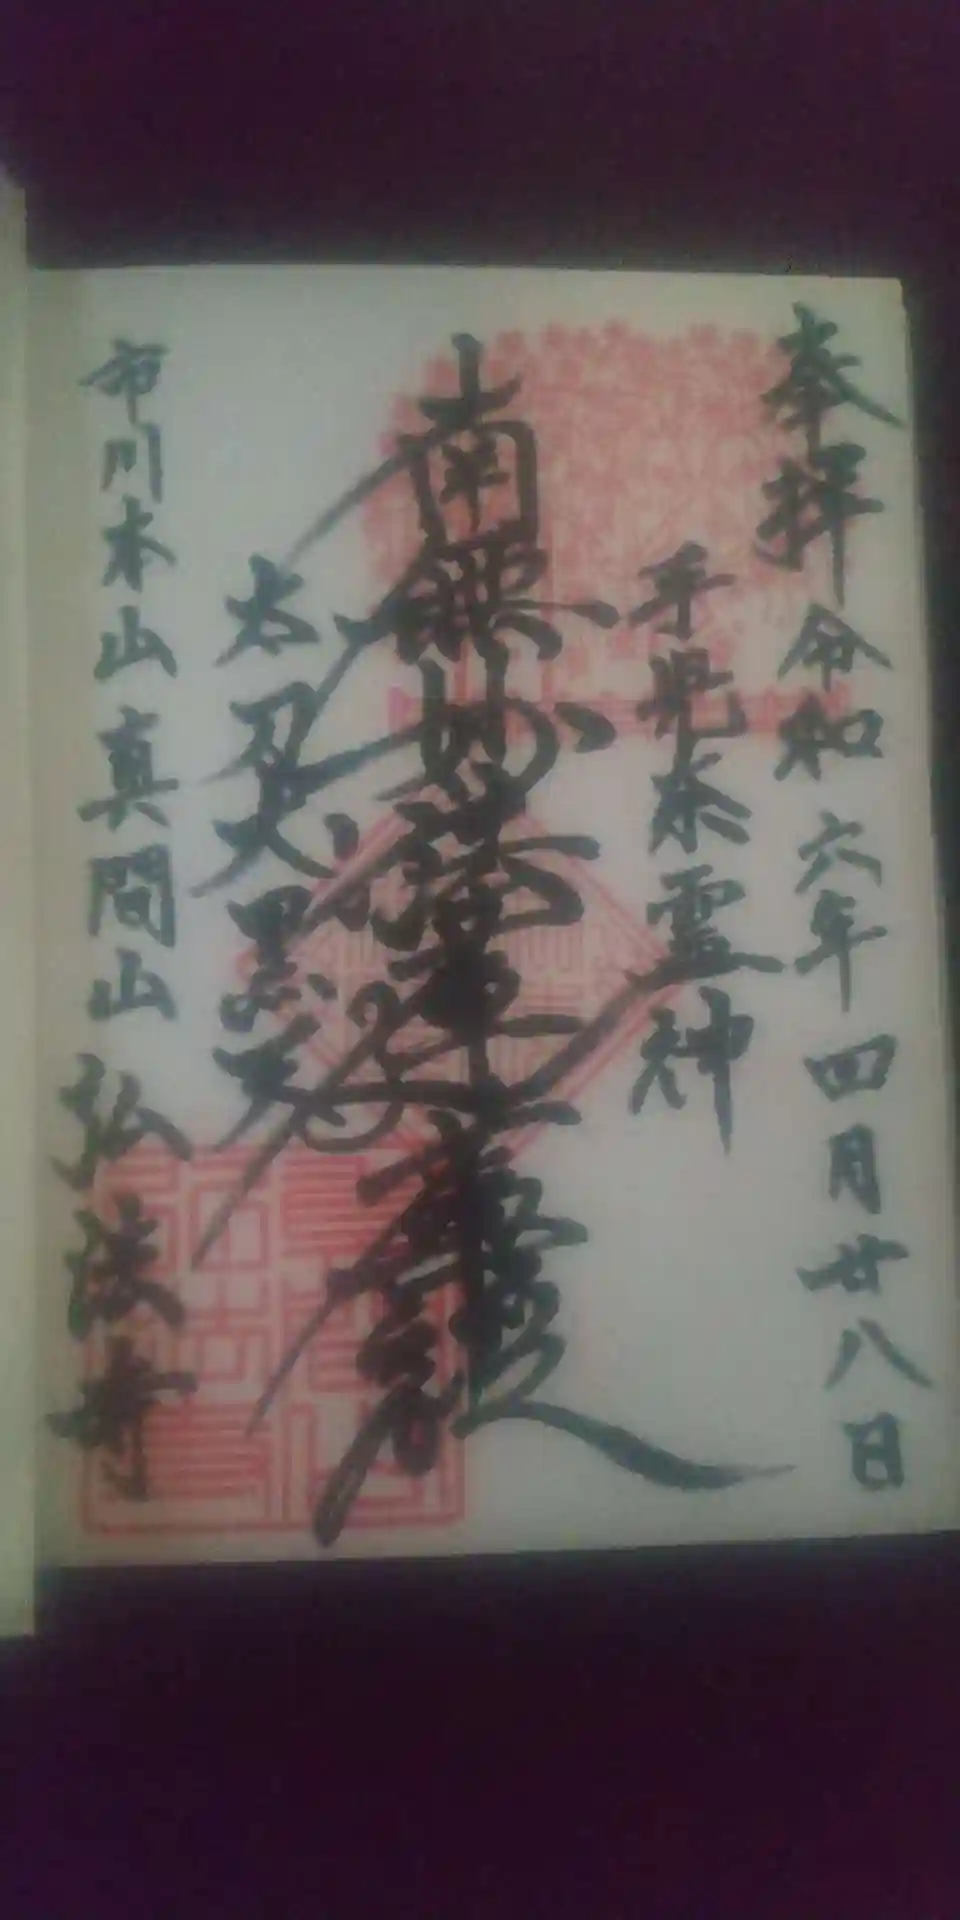 奉拝 令和六年四月廿八日
手児奈霊神
南無妙法蓮華経
太刀大黒天
市川本山 真間山 弘法寺